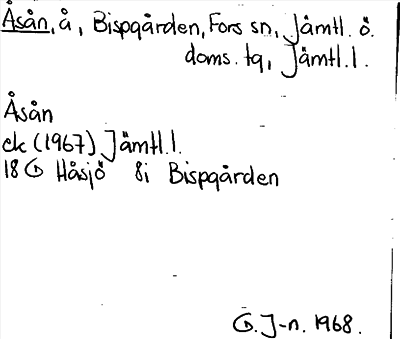 Åsån, å, Bispgården, Fors sn, Jämtl. ö.
doms. tg, Jämtl. l.
Åsån
ek (1967) Jämtl. l.
18 G Håsjö 8i Bispgården
G. J-n. 1968.